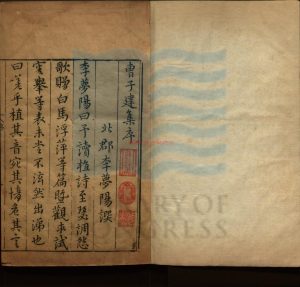 曹子建集序
北郡李夢陽譔
李夢陽曰予讀植詩至瑟調怨
歌贈白馬浮萍等篇暨觀求試
審舉等表未嘗不泫然出涕也
曰嗟乎植其音宛其情危其言
RY OF
GRESS